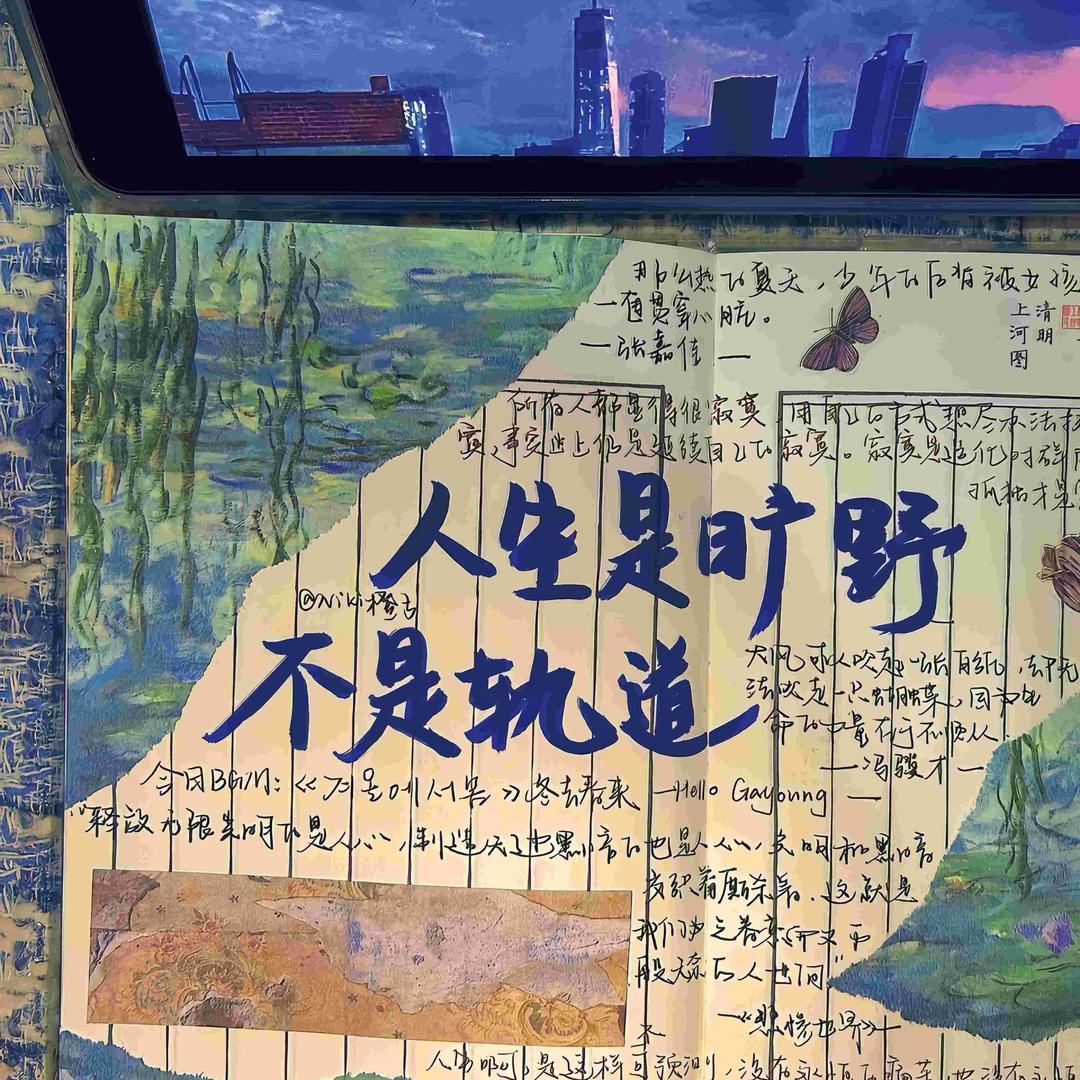 那么热的夏天，少年的后背被女孩
一 贯穿心脏。
—张嘉佳—
清明
上河图
所有人都显得很寂寞，用自己的方式想尽办法
寞，事实上仍是延续自己的寂寞。寂寞是造化对群
孤独才是
人生是旷野
@Niki橙
不是轨道
大风可以吹起一张白纸，却无
法吹走一只蝴蝶，因为生
命的力量在于不顺从
—冯骏才—
今日BGM：《겨울에서 봄》冬去春来 —Hello Gayoung—
“释放无限光明的是人心，制造无边黑暗的也是人心，光明和黑暗
交织着厮杀着。这就是
我们为之眷恋 而又
无奈的人世间”
—《悲惨世界》—
人 啊，是这样可预测，没有永恒的痛苦，也没有永恒